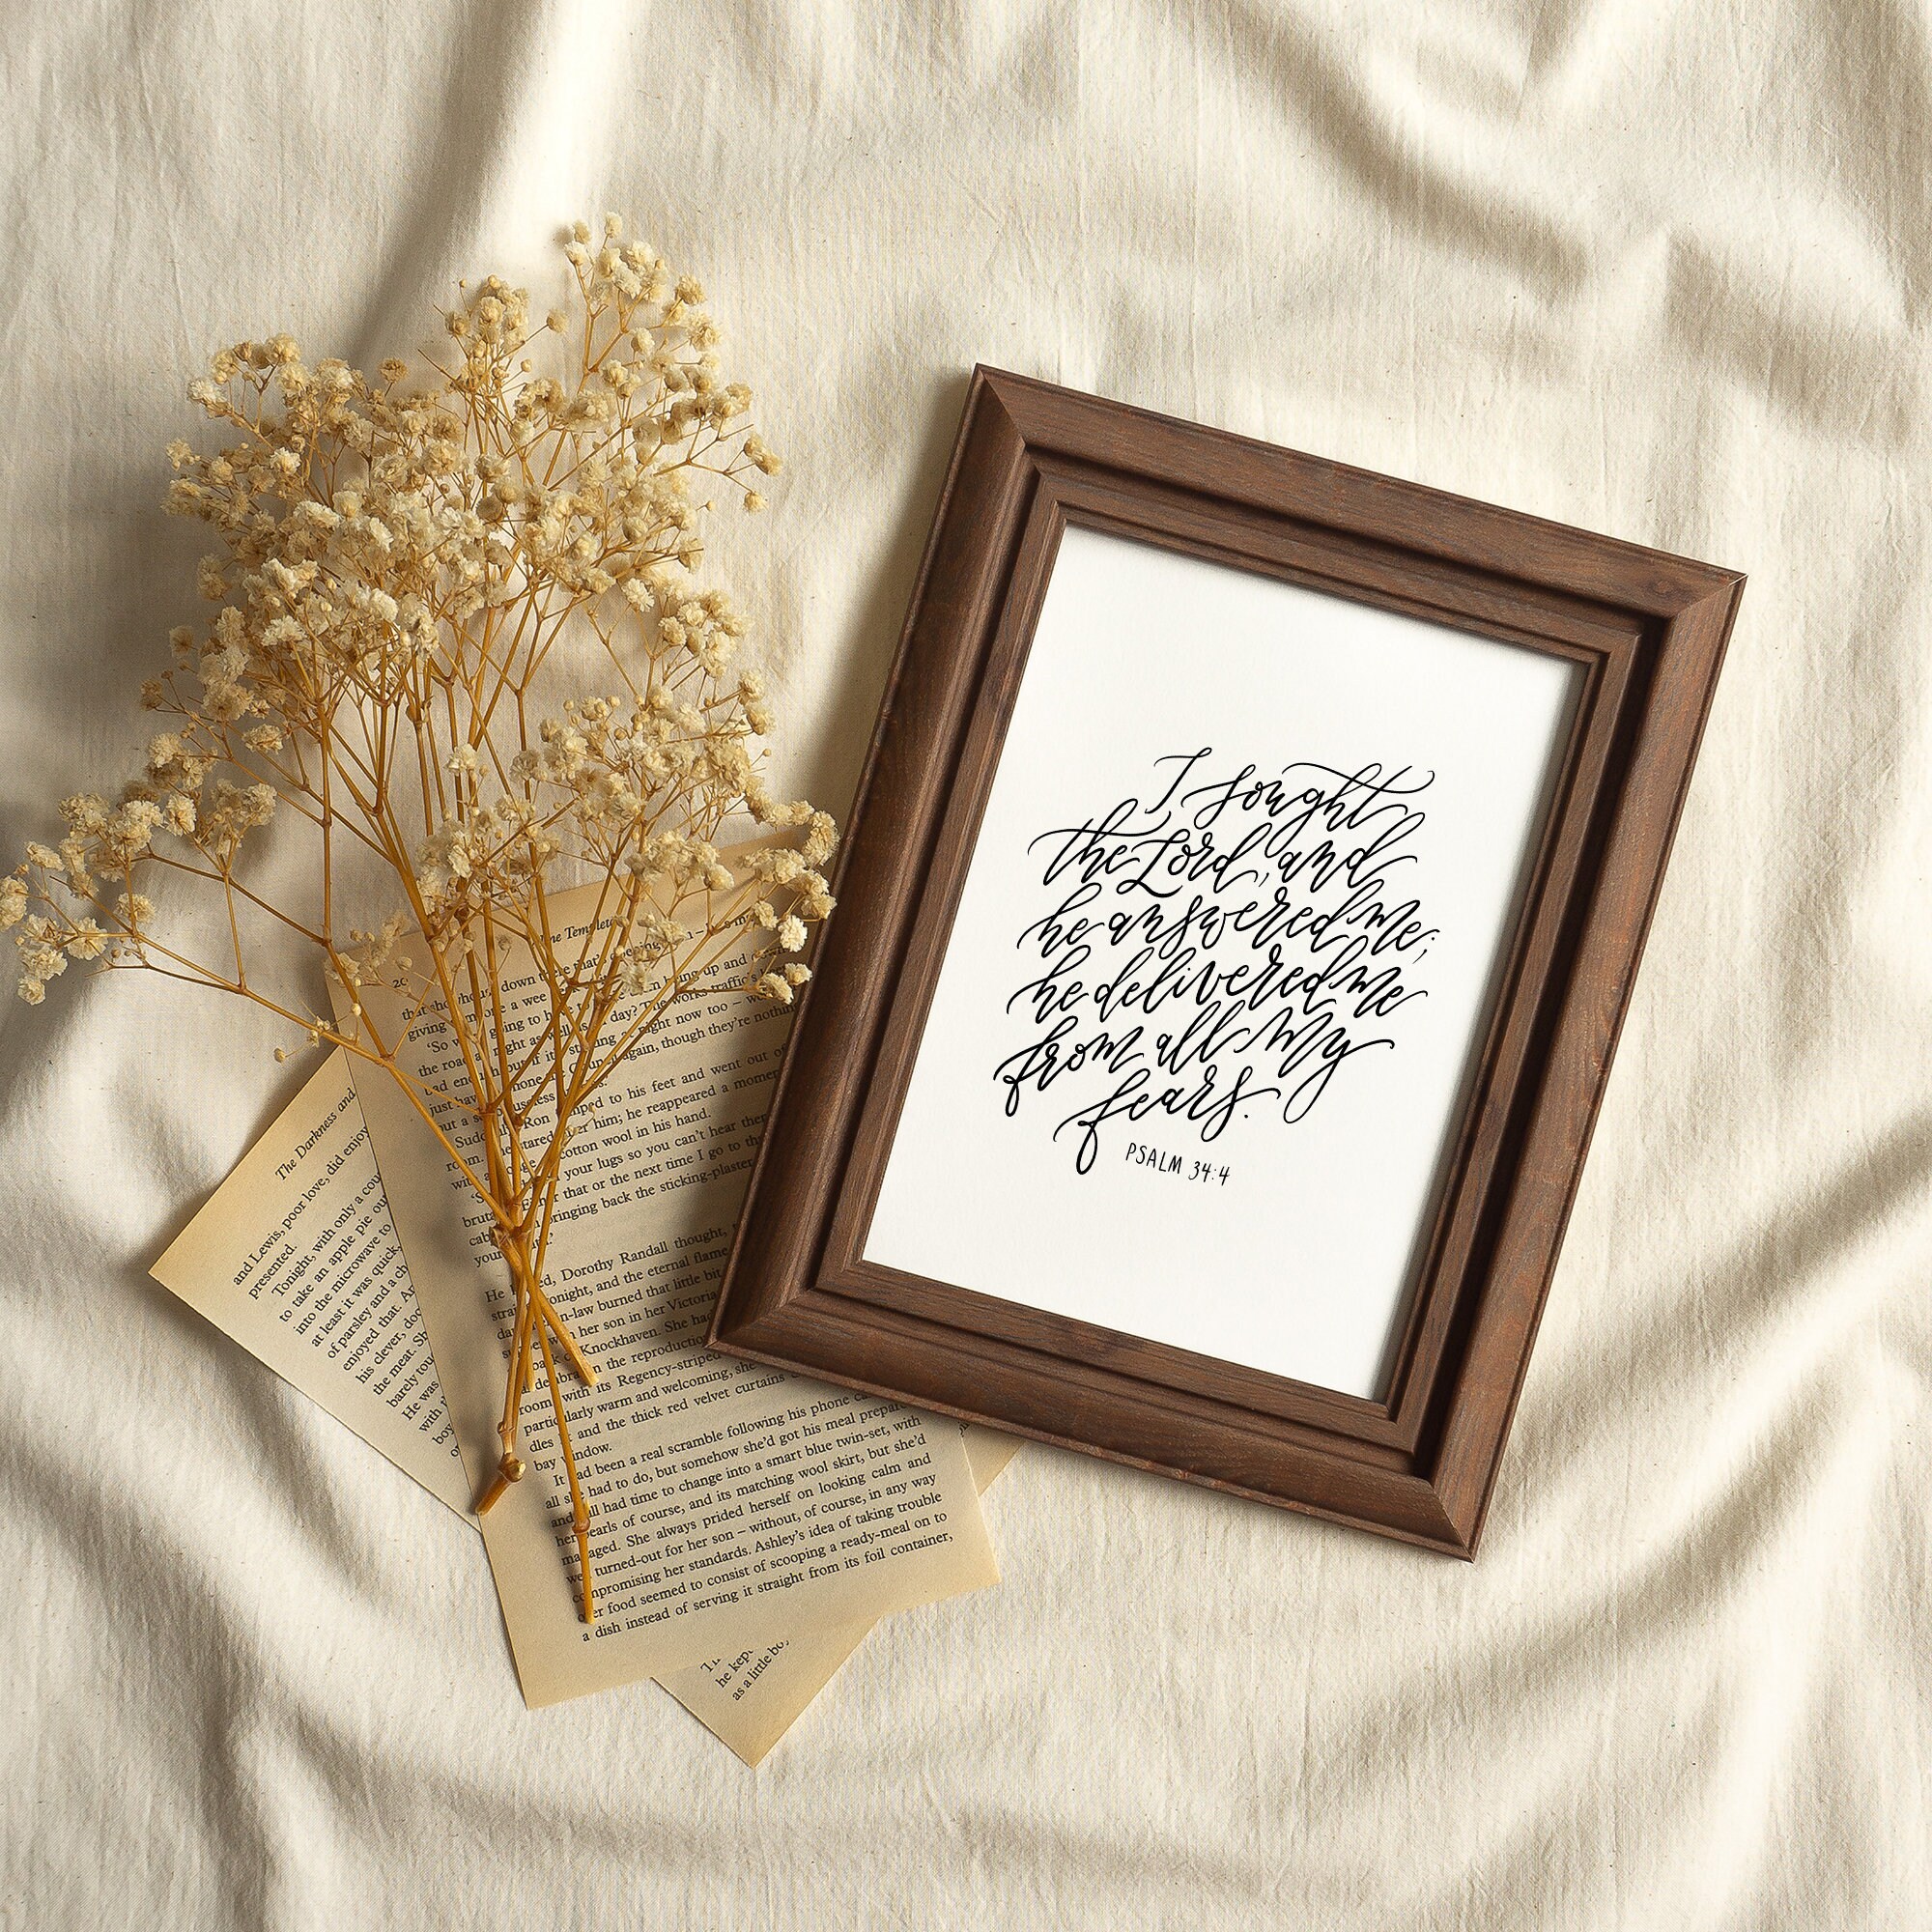 I sought
the Lord, and
he answered me;
he delivered me
from all my
fears.
PSALM 34:4
The Darkness and
and Lewis, poor love, did enjoy
presented.
Tonight, with only a
to take an apple pie
into the microwave to
at least it was quick,
of parsley and a
enjoyed that.
his clever,
the meat.
barely
He was
with
down
giving a wee
'So going to
the road at night as well as day? The works traffic's
bad enough right now too –
just again, though they're
but a useless
Suddenly Ron to his feet and went out
room. stared after him; he reappeared a
with cotton wool in his hand.
your lugs so you can't hear
that or the next time I go to
bringing back the sticking-plaster
He Dorothy Randall thought,
tonight, and the eternal flame
burned that little bit
her son in her
of Knockhaven. She
in the reproduction
room with its Regency-striped
particularly warm and welcoming, she
and the thick red velvet curtains
bay window.
It had been a real scramble following his phone
all she had to do, but somehow she'd got his meal
and still had time to change into a smart blue twin-set, with
her pearls of course, and its matching wool skirt, but she'd
managed. She always prided herself on looking calm and
well turned-out for her son – without, of course, in any way
compromising her standards. Ashley's idea of taking trouble
over food seemed to consist of scooping a ready-meal on to
a dish instead of serving it straight from its foil container,
he kept
as a little